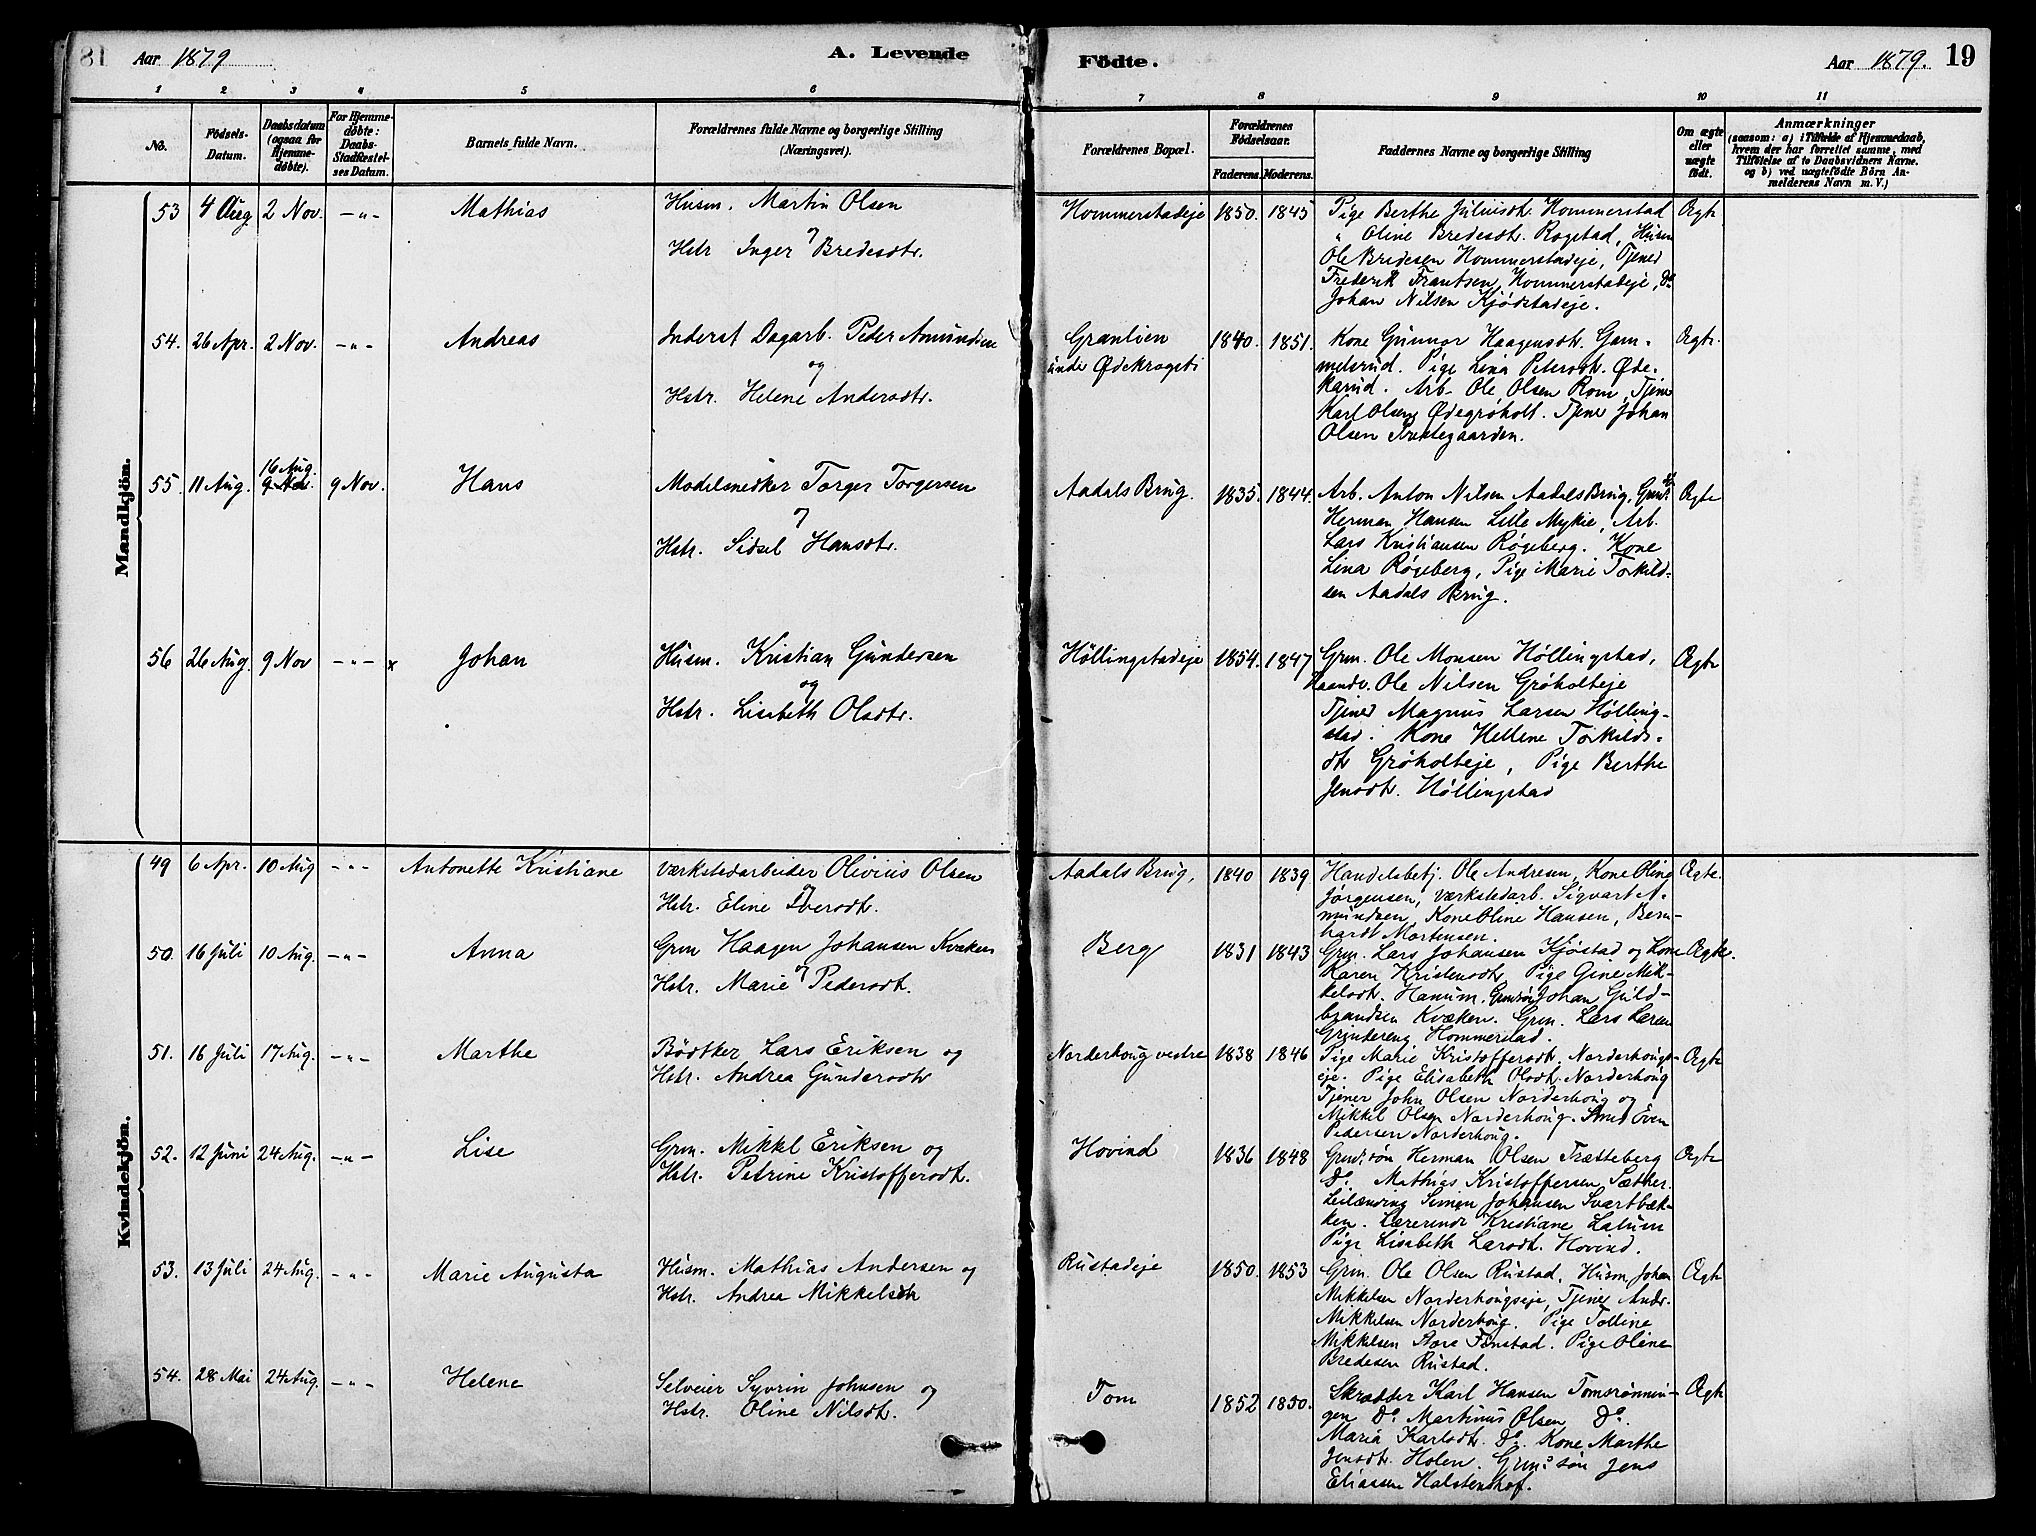 Aar 1879
A. Levende
Fødte.
Aar 1879. 19
1 2 3 4 5 6 7 8 9 10 11
No.
Fødsels-
Datum.
Daabsdatum
(ogsaa for
Hjemme-
døbte).
For Hjemme-
døbte:
Daabs-
Stadfæstel-
ses Datum.
Barnets fulde Navn.
Forældrenes fulde Navne og borgerlige Stilling
(Næringsvei).
Forældrenes Bopæl.
Forældrenes
Fødselsaar.
Faderens. Moderens.
Faddernes Navne og borgerlige Stilling
Om ægte
eller
uægte
født.
Anmærkninger
(saasom: a) i Tilfælde af Hjemmedaab,
hvem der har forrettet samme, med
Tilføielse af to Daabsvidners Navne.
og b) ved uægtefødte Børn An-
melderens Navn m. V.)
Mandkjön.
53 4 Aug. 2 Nov. -"- Mathias
Husm. Martin Olsen
og
Hstr Inger Bredesdtr.
Hommerstadeje 1850. 1845
Pige Berthe Juliusdtr. Hommerstad
" Oline Bredesdtr. Rogstad, Husm
Ole Bredesen Hommerstadeje, Tjener
Frederik Frantsen, Hommerstadeje, Do
Johan Nilsen Kjödstadeje.
Ægte
54. 26 Apr. 2 Nov. -"- Andreas
Inderst Dagarb. Peder Amundsen
og
Hstr. Helene Andersdtr.
Granlien
under Ødekragsti
1840. 1851.
Kone Gunnor Haagensdtr. Gam-
melsrud. Pige Lina Petersdt. Øde-
karud. Arb. Ole Olsen Rom, Tjener
Karl Olsen Ødegröholt. Tjener Johan
Olsen Præstegaarden.
Ægte.
55. 11 Aug. 16 Aug.
9 Nov. 9 Nov. Hans
Modelsnedker Torger Torgersen
og
Hstr. Sidsel Hansdtr.
Aadals Brug. 1835. 1844.
Arb. Anton Nilsen Aadals Brug,
Herman Hansen Lille Mykie, Arb.
Lars Kristiansen Røgeberg. Kone
Lina Røgeberg, Pige Marie Torkild-
sen Aadals Brug.
Ægte
56 26 Aug. 9 Nov -"- x Johan
Husm. Kristian Gundersen
og
Hstr. Lisabeth Olsdtr.
Höllingstadeje 1854. 1847
Grm. Ole Monsen Höllingstad,
Haandv. Ole Nilsen Gröholteje
Tjener Magnus Larsen Hölling-
stad. Kone Hellene Torkilds-
dt Gröholteje, Pige Berthe
Jensdt. Höllingstad
Ægte
Kvindekjön.
49 6 Apr. 10 Aug -"- Antonette Kristiane
Værkstedarbeider Olivius Olsen
og
Hstr. Eline Iversdt.
Aadals Brug, 1840 1839
Handelsbetj. Ole Andresen, Kone Oline
Jørgensen, Værkstedarb. Sigvart A-
mundsen, Kone Oline Hansen, Bern-
hardt Mortensen.
Ægte.
50. 16 Juli 10 Aug. -"- Anna
Grm Haagen Johansen Kvæken
og
Hstr. Marie Pedersdt.
Berg 1831 1843
Grm. Lars Johansen Kjöstad og Kone
Karen Kristensdt, Pige Gine Mik-
kelsdt. Hanum. Johan Guld-
brandsen Kvæken. Grm. Lars Larsen
Grindereng Hommerstad.
Ægte.
51. 16 Juli 17 Aug. -"- Marthe
Bödtker Lars Eriksen og
Hstr. Andrea Gundersdtr
Norderhoug vestre 1838 1846
Pige Marie Kristoffersdt. Norderhougs-
eje. Pige Elisabeth Olsdt. Norderhoug
Tjener John Olsen Norderhoug og
Mikkel Olsen Norderhoug. Smed Even
Pedersen Norderhoug.
Ægte
52. 12 Juni 24 Aug. -"- Lise
Grm. Mikkel Eriksen og
Hstr. Petrine Kristoffersdt.
Hovind 1836 1848
Grmdsön Herman Olsen Trætteberg
Do Mathias Kristoffersen Sæther.
Leilænding Simen Johansen Svartbæk-
ken. Lærerinde Kristiane Lalum
Pige Lisabeth Larsdt. Hovind.
Ægte
53. 13 Juli 24 Aug. -"- Marie Augusta
Husm. Mathias Andersen og
Hstr. Andrea Mikkelsdtr
Rustadeje 1850. 1853
Grm. Ole Olsen Rustad, Husm. Johan
Mikkelsen Norderhougseje, Tjener Andr.
Mikkelsen Norderhoug. Pige Tolline
Mikkelsen Store Finstad. Pige Oline
Bredesen Rustad.
Ægte
54. 28 Mai 24 Aug. -"- Helene
Selveier Syvrin Johnsen og
Hstr. Oline Nilsdt.
Tom 1852 1850.
Skrædder Karl Hansen Tomsrönnin-
gen Do Martinus Olsen Do.
Maria Karlsdt. Do. Kone Marthe
Jensdt. Holen. Grm. sön Jens
Eliassen Halstenshof.
Ægte